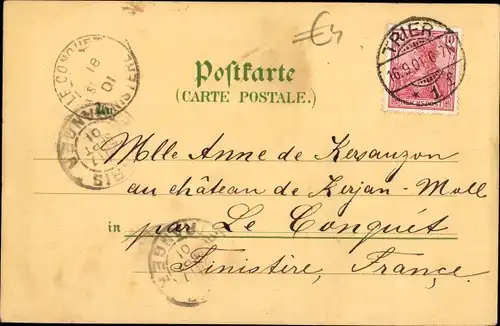 €4
TRIER
16.9.01. 6-7N.
* 1 s
LE CONQUET
18
9
01
FINISTERE
Postkarte
(CARTE POSTALE.)
Mlle Anne de Kersauzon
au château de Kerjan-Moll
in par Le Conquêt
Finistère, France.